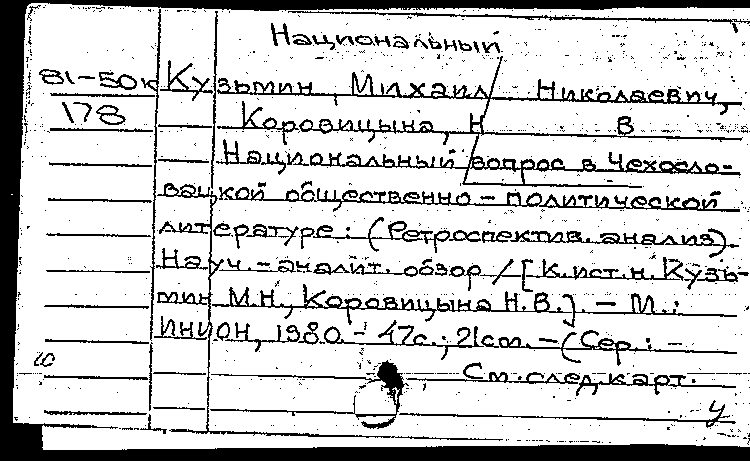 Национальный
81-50к Кузьмин, Михаил Николаевич,
178 Коровицына, Н В
Национальный вопрос в Чехосло-
вацкой общественно-политической
литературе: (Ретроспектив. анализ).
Науч.-аналит. обзор / [К.ист.н. Кузь-
мин М.Н., Коровицына Н.В.]. - М.:
ИНИОН, 1980. - 47с.; 21см. - (Сер.: -
См. след. карт.
у